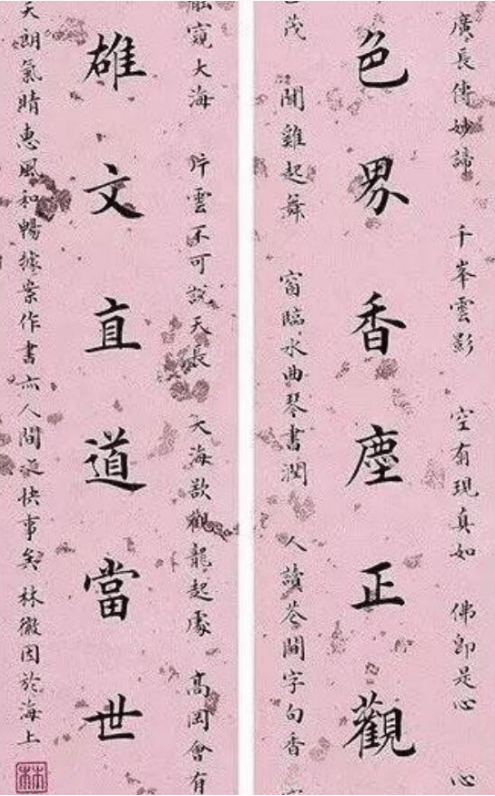 廣長傳妙諦 千峯雲影 空有現真如 佛即是心 心
色界香塵正觀
茂 聞雞起舞 窗臨水曲琴書潤 人讀花間字句香
窺大海 片雲不可説天長 大海欲觀龍起處 高岡會有
雄文直道當世
天朗氣晴惠風和暢據案作書亦人間一快事矣 林徽因於海上
林